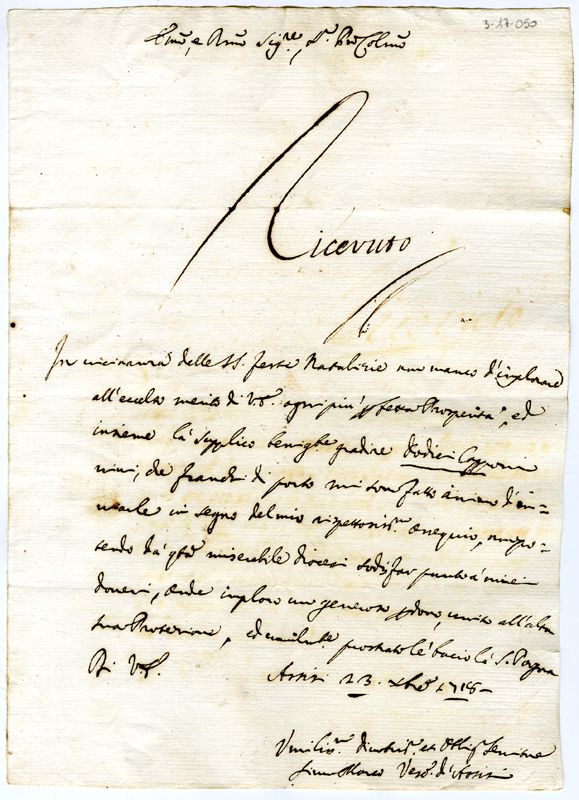 3-17-050
Ill.mo, e R.mo Sig.re, P.ron Colmo
Ricevuto
In vicinanza delle SS. feste Natalizie non manco d'implorare
all'eccelso merito di V.S. ogni più perfetta Prosperità, ed
insieme la supplico benig.te gradire dodici Capponi
mini, che franchi di porto mi son fatto animo d'in=
viarle in segno del mio rispettosis.mo ossequio, non po=
tendo da q.ta miserabile diocesi sodisfar punto à miei
doveri, onde imploro un generoso perdono, unito all'alta
sua Protezione, ed umilm.te prostrato le bacio la S. Porpora
Di V.S. Assisi 23. Xbre 1718
Umilis.mo Divotis.mo et Obblig. Servitore
Marco Vesc.o d'Assisi